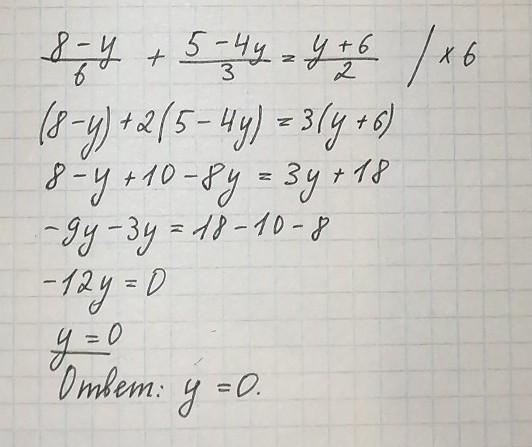 (8-y)/6 + (5-4y)/3 = (y+6)/2 / × 6
(8-y)+2(5-4y) = 3(y+6)
8-y+10-8y = 3y+18
-9y-3y=18-10-8
-12y=0
y=0
Ответ: y=0.